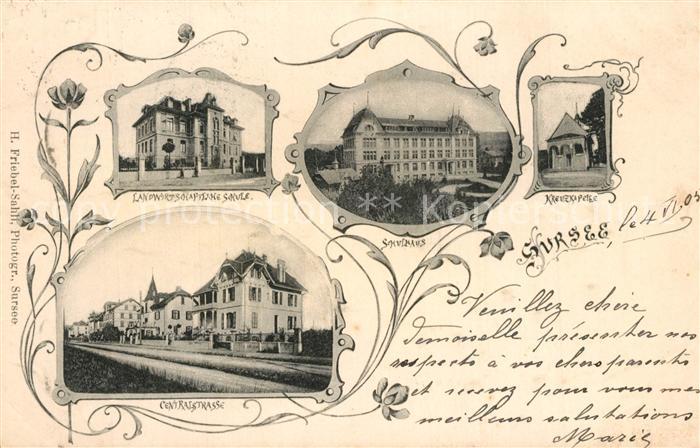 LANDWIRTSCHAFTLICHE SCHULE.
SCHULHAUS
KREUZKAPELLE
CENTRALSTRASSE
SURSEE, le 4 VI. 03
H. Friebel-Sahli, Photogr., Sursee
Veuillez chère
demoiselle présenter nos
respects à vos chers parents
et recevez pour vous mes
meilleurs salutations
Marie
copyright protection watermark